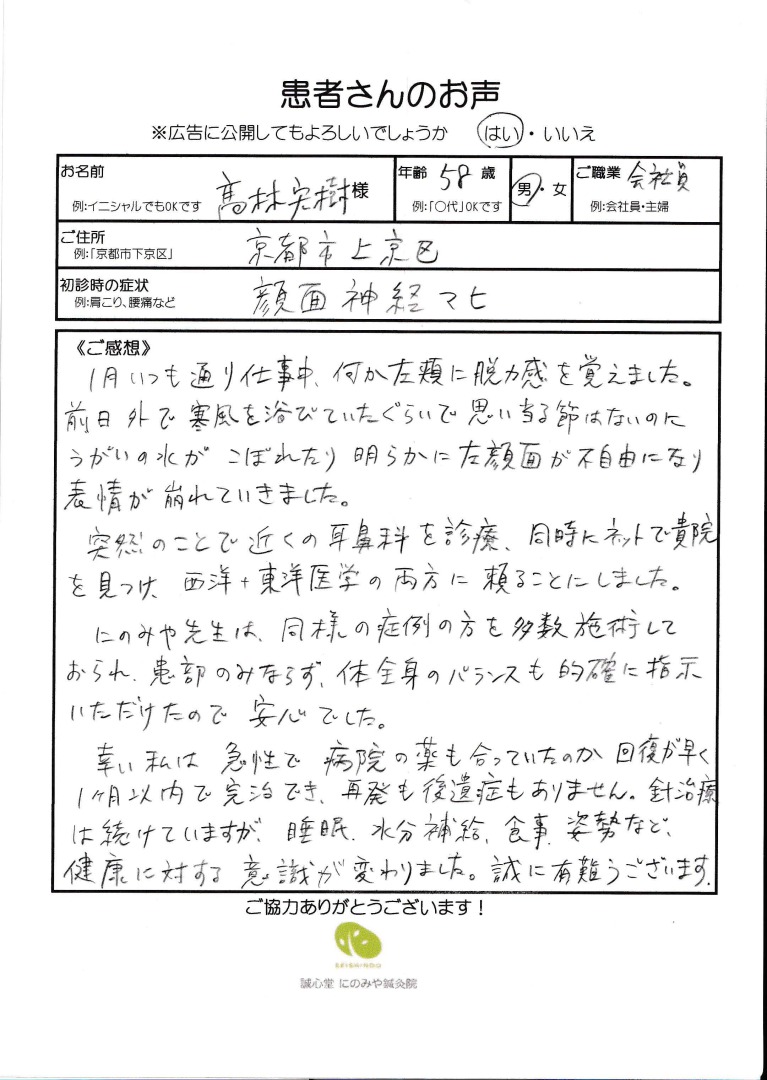 患者さんのお声
※広告に公開してもよろしいでしょうか はい・いいえ
お名前 髙林実樹 様 年齢 58 歳 男・女 ご職業 会社員
例:イニシャルでもOKです 例:「〇代」OKです 例:会社員・主婦
ご住所 京都市上京区
例:「京都市下京区」
初診時の症状 顔面神経マヒ
例:肩こり、腰痛など
《ご感想》
1月いつも通り仕事中、何か左頬に脱力感を覚えました。
前日外で寒風を浴びていたぐらいで思い当る節はないのに
うがいの水がこぼれたり明らかに左顔面が不自由になり
表情が崩れていきました。
突然のことで近くの耳鼻科を診療、同時にネットで貴院
を見つけ、西洋+東洋医学の両方に頼ることにしました。
にのみや先生は、同様の症例の方を多数施術して
おられ、患部のみならず、体全身のバランスも的確に指示
いただけたので安心でした。
幸い私は急性で病院の薬も合っていたのか回復が早く
1ヶ月以内で完治でき、再発も後遺症もありません。針治療
は続けていますが、睡眠、水分補給、食事、姿勢など、
健康に対する意識が変わりました。誠に有難うございます。
ご協力ありがとうございます！
SEISHINDO
誠心堂 にのみや鍼灸院